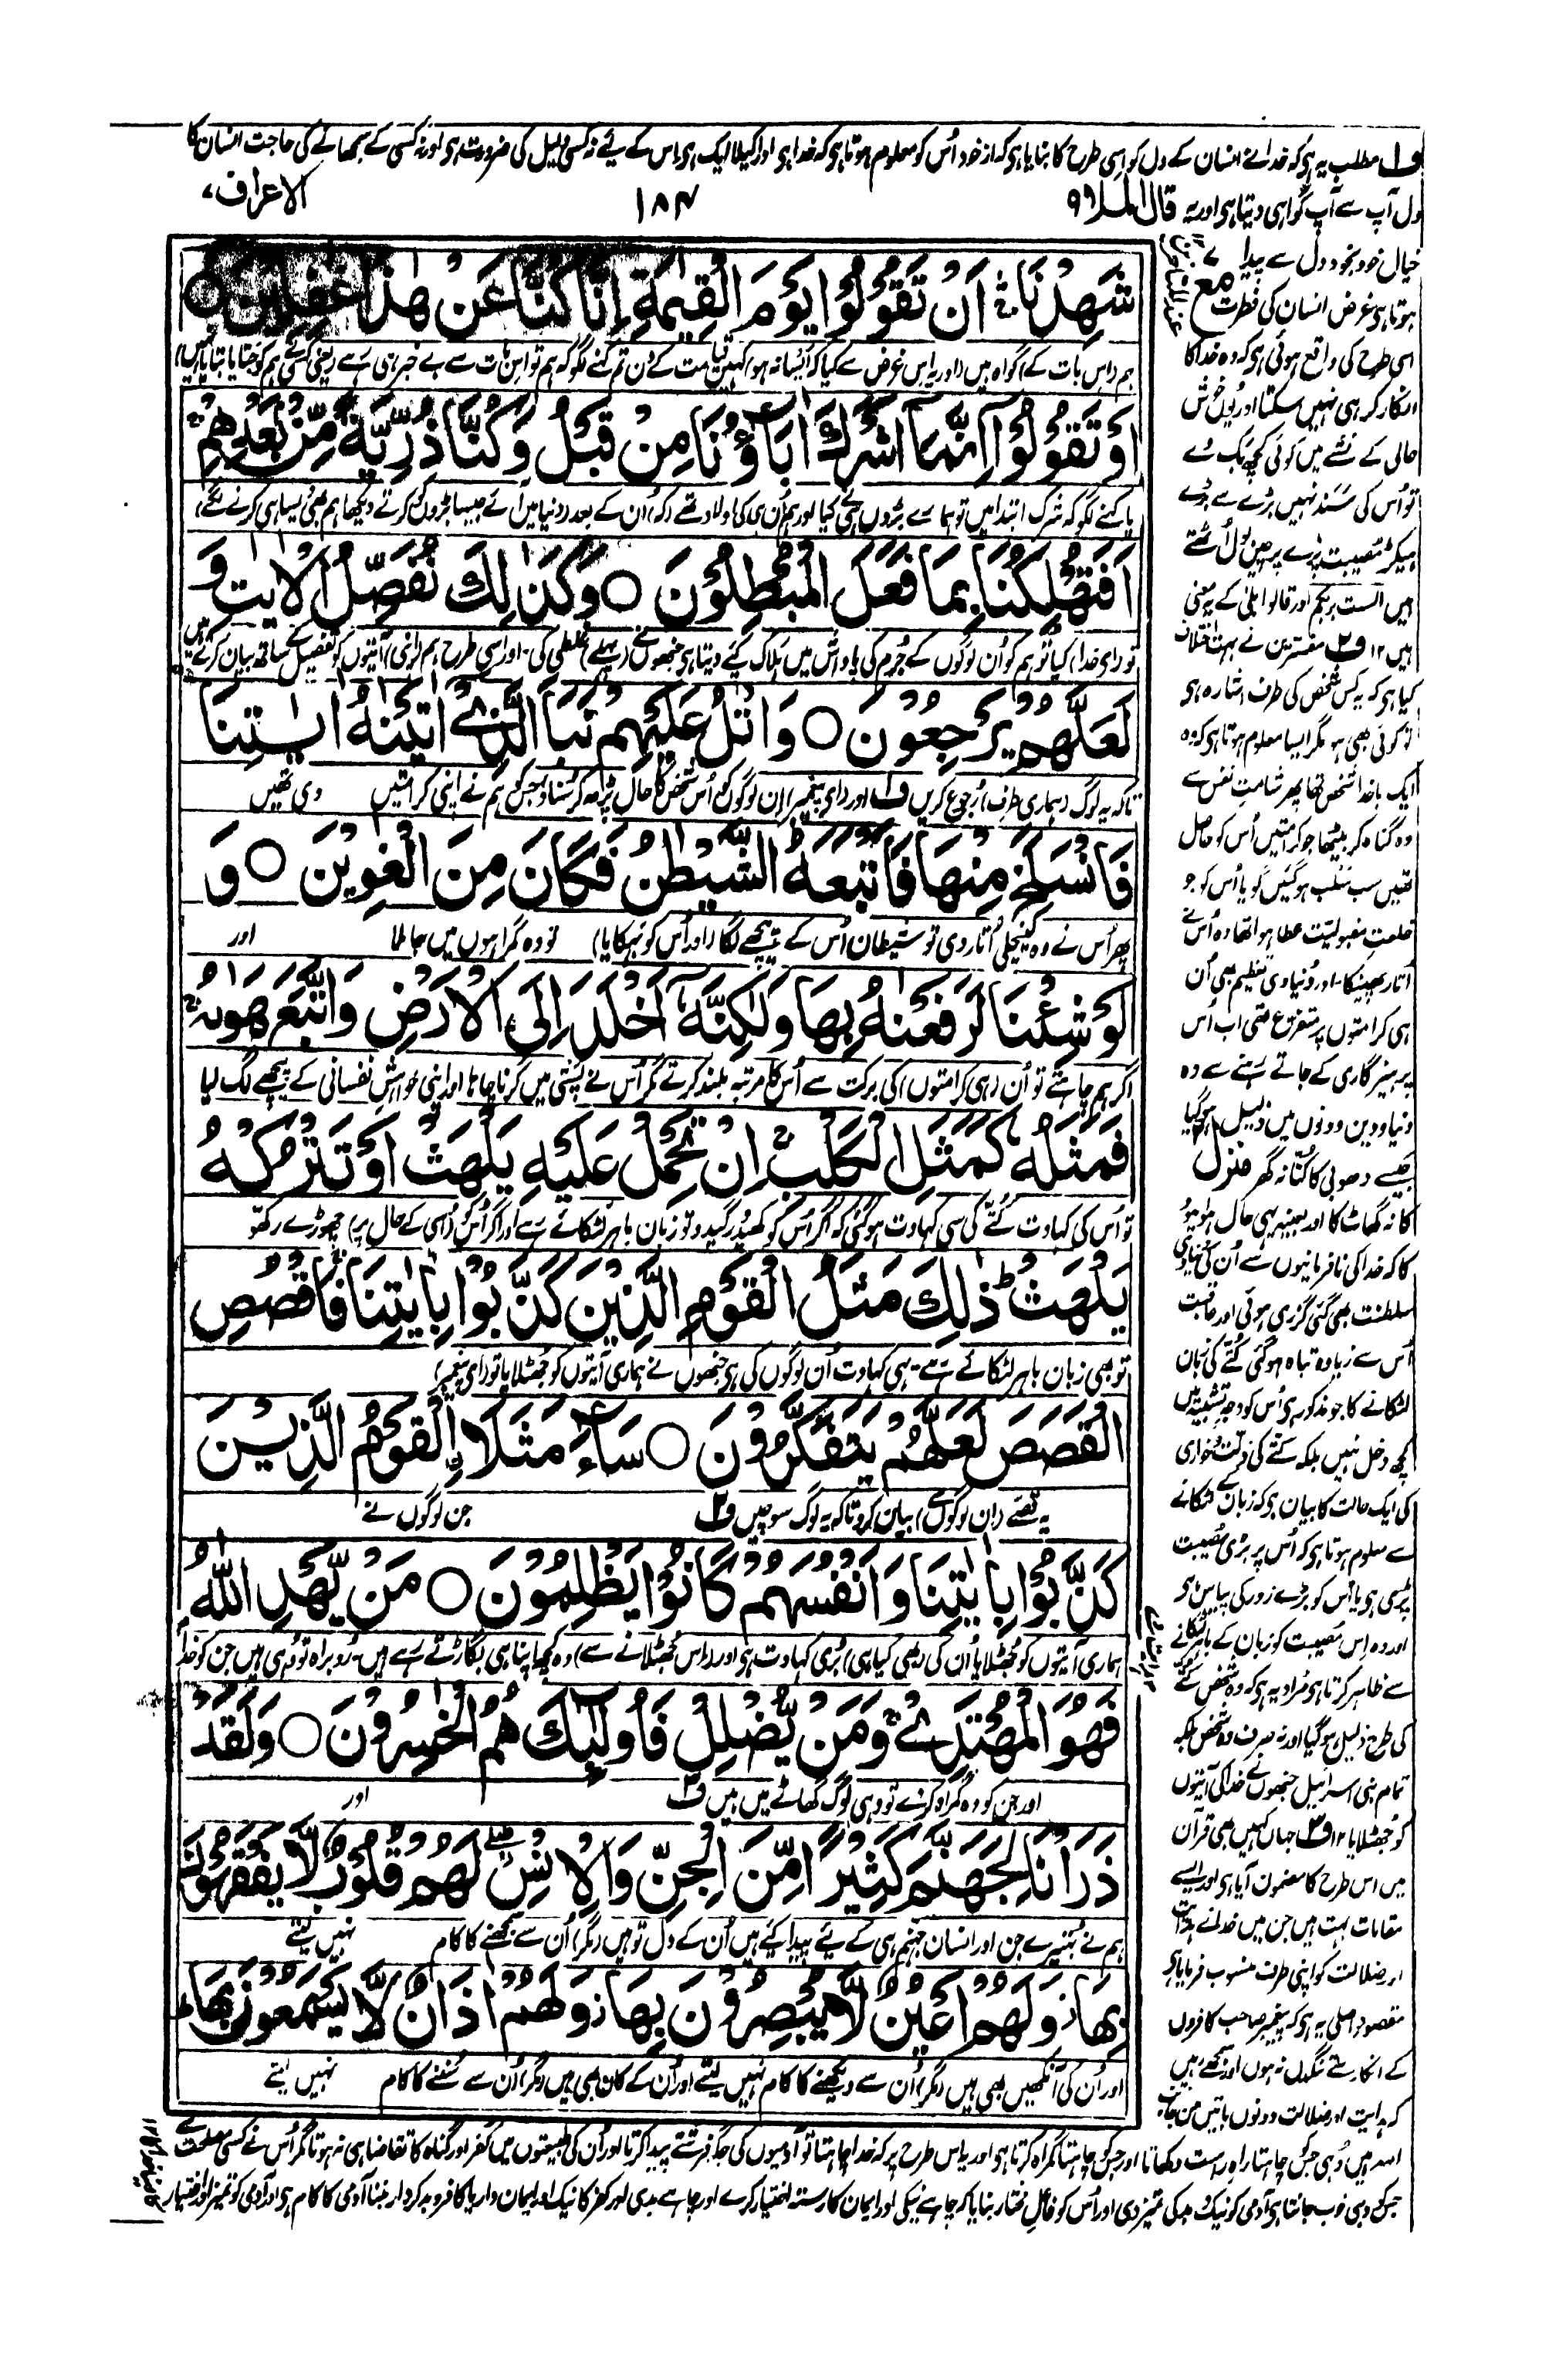 ف۱ مطلب یہ ہی کہ خدا نے انسان کے دل کو اِسی طرح کا بنایا ہی کہ از خود اُس کو معلوم ہوتا ہی کہ خدا ہی اور اکیلا ایک ہی اس کے لیے نہ کسی دلیل کی ضرورت ہی اور نہ کسی کے سمجھانے کی حاجت انسان کا
دل آپ سے آپ گواہی دیتا ہی اور یہ
قال الملا ۹
۱۸۴
الاعراف ۷
شَهِدْنَا ۛ اَنْ تَقُوْلُوْا يَوْمَ الْقِيٰمَةِ اِنَّا كُنَّا عَنْ هٰذَا غٰفِلِيْنَ ○
ہم (اس بات کے) گواہ ہیں (اور یہ اِس غرض سے کیا کہ ایسا نہ ہو) کہیں قیامت کے دن تم کہنے لگو کہ ہم تو اِس بات سے بے خبر ہی رہے (یعنی کسی نے ہم کو جتایا بتایا نہیں)
اَوْ تَقُوْلُوْۤا اِنَّمَاۤ اَشْرَكَ اٰبَآؤُنَا مِنْ قَبْلُ وَكُنَّا ذُرِّيَّةً مِّنْۢ بَعْدِهِمْ ۚ
یا کہنے لگو کہ شرک ابتدا میں تو ہمارے بڑوں ہی نے کیا اور ہم اُن ہی کی اولاد تھے (کہ) اُن کے بعد (دنیا میں آئے جیسا بڑوں کو کرتے دیکھا ہم بھی ویسا ہی کرنے لگے)
اَفَتُهْلِكُنَا بِمَا فَعَلَ الْمُبْطِلُوْنَ ○ وَكَذٰلِكَ نُفَصِّلُ الْاٰيٰتِ وَ
تو (ای خدا) کیا تو ہم کو اُن لوگوں کے جُرم کی پاداش میں ہلاک کیے دیتا ہی جنھوں نے (پہلے) غلطی کی۔ اور اسی طرح ہم (اپنی) آیتوں کو تفصیل کے ساتھ بیان کرتے ہیں
لَعَلَّهُمْ يَرْجِعُوْنَ ○ وَاتْلُ عَلَيْهِمْ نَبَاَ الَّذِيْۤ اٰتَيْنٰهُ اٰيٰتِنَا
تاکہ یہ لوگ (ہماری طرف) رجوع کریں ف۱ اور (ای پیغمبر) اِن لوگوں کو اُس شخص کا حال پڑھ کر سُنا دو جس کو ہم نے اپنی کرامتیں دی تھیں
فَانْسَلَخَ مِنْهَا فَاَتْبَعَهُ الشَّيْطٰنُ فَكَانَ مِنَ الْغٰوِيْنَ ○ وَ
پھر اُس نے وہ کینچلی اُتار دی تو شیطان اُس کے پیچھے لگا (اور اُس کو بہکایا) تو وہ گمراہوں میں جا ملا اور
لَوْ شِئْنَا لَرَفَعْنٰهُ بِهَا وَلٰكِنَّهٗۤ اَخْلَدَ اِلَى الْاَرْضِ وَاتَّبَعَ هَوٰىهُ ۚ
اگر ہم چاہتے تو اُن (ہی کرامتوں) کی برکت سے اُس کا مرتبہ بلند کرتے مگر اُس نے پستی میں گرنا چاہا اور اپنی خواہشِ نفسانی کے پیچھے لگ لیا
فَمَثَلُهٗ كَمَثَلِ الْكَلْبِ ۚ اِنْ تَحْمِلْ عَلَيْهِ يَلْهَثْ اَوْ تَتْرُكْهُ
تو اُس کی کہاوت کُتّے کی سی کہاوت ہو گئی کہ اگر اُس کو کھدیڑ دو تو زبان باہر لٹکائے رہے اور اگر اُس کو (اُسی کے حال پر) چھوڑے رکھو
يَلْهَثْ ؕ ذٰلِكَ مَثَلُ الْقَوْمِ الَّذِيْنَ كَذَّبُوْا بِاٰيٰتِنَا ۚ فَاقْصُصِ
تو بھی زبان باہر لٹکائے رہے۔ یہی کہاوت اُن لوگوں کی ہی جنھوں نے ہماری آیتوں کو جُھٹلایا تو (ای پیغمبر)
الْقَصَصَ لَعَلَّهُمْ يَتَفَكَّرُوْنَ ○ سَآءَ مَثَلَا ۨالْقَوْمُ الَّذِيْنَ
یہ قصّے (ان لوگوں سے) بیان کرو تاکہ یہ لوگ سوچیں ف۲ جن لوگوں نے
كَذَّبُوْا بِاٰيٰتِنَا وَاَنْفُسَهُمْ كَانُوْا يَظْلِمُوْنَ ○ مَنْ يَّهْدِ اللّٰهُ
ہماری آیتوں کو جُھٹلایا اُن کی (بھی کیا ہی) بُری کہاوت ہی اور (اس جُھٹلانے سے) وہ کچھ اپنا ہی بگاڑتے رہے ہیں۔ رُو براہ تو وُہی ہیں جن کو خدا
فَهُوَ الْمُهْتَدِيْ ۚ وَمَنْ يُّضْلِلْ فَاُولٰٓئِكَ هُمُ الْخٰسِرُوْنَ ○ وَلَقَدْ
اور جن کو وہ گمراہ کرے تو وہی لوگ گھاٹے میں ہیں ف۳ اور
ذَرَاْنَا لِجَهَنَّمَ كَثِيْرًا مِّنَ الْجِنِّ وَالْاِنْسِ ۖ لَهُمْ قُلُوْبٌ لَّا يَفْقَهُوْنَ
ہم نے بُہتیرے جن اور انسان جہنم ہی کے لیے پیدا کیے ہیں اُن کے دل تو ہیں (مگر) اُن سے سمجھنے کا کام نہیں لیتے
بِهَا ؗ وَلَهُمْ اَعْيُنٌ لَّا يُبْصِرُوْنَ بِهَا ؗ وَلَهُمْ اٰذَانٌ لَّا يَسْمَعُوْنَ بِهَا ؕ
اور اُن کی آنکھیں بھی ہیں (مگر) اُن سے دیکھنے کا کام نہیں لیتے اور اُن کے کان بھی ہیں (مگر) اُن سے سُننے کا کام نہیں لیتے
خیال خود بخود دل سے پیدا
ہوتا ہی غرض انسان کی فطرت
مع
اسی طرح کی واقع ہوئی ہی کہ وہ خدا کا
انکار کر ہی نہیں سکتا اور یوں خوش
حالی کے نشے میں کوئی کچھ بک دے
تو اُس کی سَنَد نہیں بڑے سے بڑے
ہیکڑ مصیبت پڑے پر چیں بول اُٹھتے
ہیں الست بربکم اور قالوا بلیٰ کے یہی معنی
ہیں ۱۲ ف۲ مفسرین نے بہت اختلاف
کیا ہی کہ یہ کس شخص کی طرف اشارہ ہی
کوئی بھی ہو مگر ایسا معلوم ہوتا ہی کہ وہ
ایک باخدا شخص تھا پھر شامتِ نفس سے
وہ گناہ کر بیٹھا جو کرامتیں اُس کو حاصل
تھیں سب سلب ہو گئیں گویا اُس کو جو
خلعتِ مقبولیّت عطا ہوا تھا وہ اُس نے
اُتار پھینکا۔ اور دُنیاوی تعظیم بھی اُن
ہی کرامتوں پر متفرع تھی اب اُس
پرہیزگاری کے جاتے رہنے سے وہ
دنیا و دین دونوں میں ذلیل ہو گیا
جیسے دھوبی کا کتّا نہ گھر
منزل ۲
کا نہ گھاٹ کا اور بعینہ یہی حال ہوا یہود
کا کہ خدا کی نافرمانیوں سے اُن کی دنیاوی
سلطنت بھی گئی گزری ہوئی اور عاقبت
اُس سے زیادہ تباہ ہو گئی کُتّے کی زبان
لٹکانے کا جو مذکور ہی اُس کو وجہِ تشبیہ میں
کچھ دخل نہیں بلکہ کتّے کی ذلّت و خواری
کی ایک حالت کا بیان ہی کہ زبان کے لٹکانے
سے معلوم ہوتا ہی کہ اُس پر بڑی مُصیبت
پڑی ہی یا اُس کو بڑے زور کی پیاس ہی
اور وہ اِس مُصیبت کو زبان کے باہر لٹکانے
سے ظاہر کرتا ہی مُراد یہ ہی کہ وہ شخص کتّے
کی طرح ذلیل ہو گیا اور نہ صرف وہ شخص بلکہ
تمام بنی اسرائیل جنھوں نے خدا کی آیتوں
کو جُھٹلایا ۱۲ ف۳ جہاں کہیں بھی قرآن
میں اس طرح کا مضمون آیا ہی اور ایسے
مقامات بہت ہیں جن میں خدا نے ہدایت
اور ضلالت کو اپنی طرف منسوب فرمایا ہی
مقصودِ اصلی یہ ہی کہ پیغمبر صاحب کافروں
کے انکار سے تنگدل نہ ہوں اور سمجھے رہیں
کہ ہدایت اور ضلالت دونوں باتیں من جانب
اللہ ہیں وُہی جس کو چاہتا راہِ راست دکھاتا اور جس کو چاہتا گمراہ کرتا ہی اور یہ اس طرح پر کہ خدا چاہتا تو آدمیوں کی جگہ فرشتے پیدا کرتا اور اُن کی طبیعتوں میں کفر اور گناہ کا تقاضا ہی نہ ہوتا مگر اُس نے کسی مصلحت سے
جس کو وہی خوب جانتا ہی آدمی کو نیک و بد کی تمیز دی اور اُس کو فاعلِ مختار بنایا کہ چاہے نیکی اور ایمان کا رستہ اختیار کرے اور چاہے بدی اور کفر کا نیک اور ایمان دار یا کافر و بدکردار بننا آدمی کا کام ہی اور آدمی کو تمیز اور اختیار